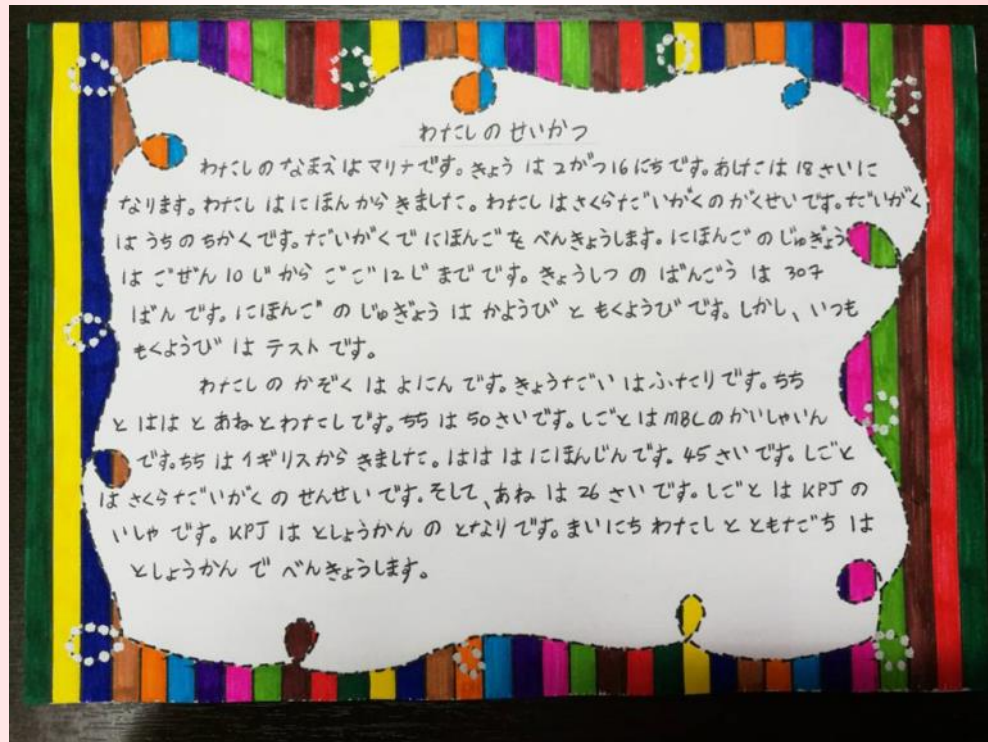 わたしのせいかつ
わたしのなまえはマリナです。きょうは2がつ16にちです。あしたは18さいに
なります。わたしはにほんからきました。わたしはさくらだいがくのがくせいです。だいがく
はうちのちかくです。だいがくでにほんごをべんきょうします。にほんごのじゅぎょう
はごぜん10じからごご12じまでです。きょうしつのばんごうは307
ばんです。にほんごのじゅぎょうはかようびともくようびです。しかし、いつも
もくようびはテストです。
わたしのかぞくはよにんです。きょうだいはふたりです。ちち
とははとあねとわたしです。ちちは50さいです。しごとはMBCのかいしゃいん
です。ちちはイギリスからきました。はははにほんじんです。45さいです。しごと
はさくらだいがくのせんせいです。そして、あねは26さいです。しごとはKPJの
いしゃです。KPJはとしょうかんのとなりです。まいにちわたしとともだちは
としょうかんでべんきょうします。